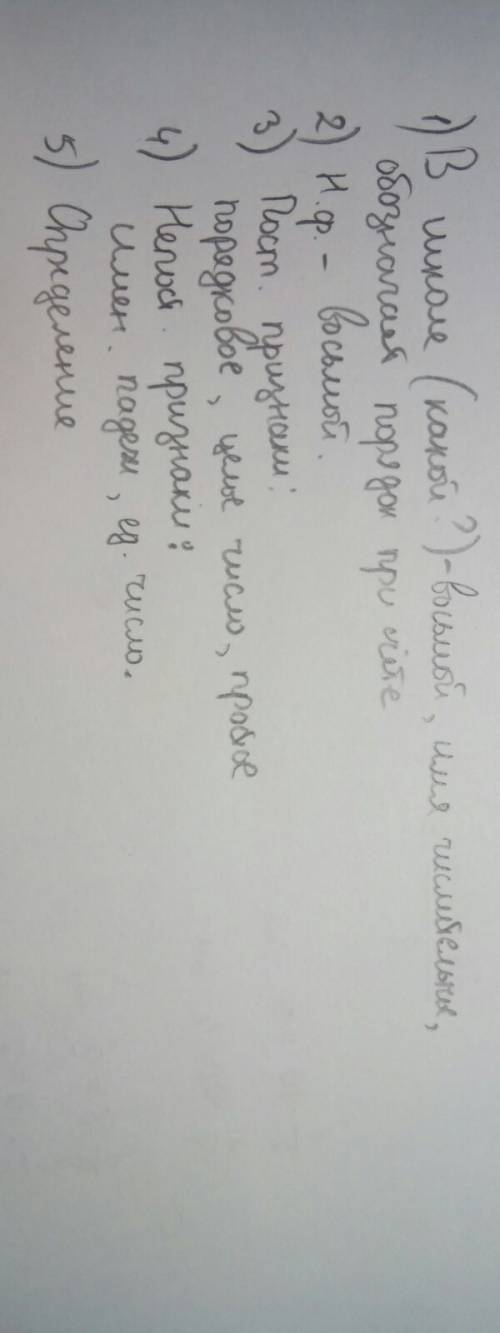 1) В школе (какой?) - восьмой, имя числительное,
обозначает порядок при счёте
2) Н.ф. - восьмой.
3) Пост. признаки:
порядковое, целое число, простое
4) Непост. признаки:
Имен. падеж, ед. число.
5) Определение